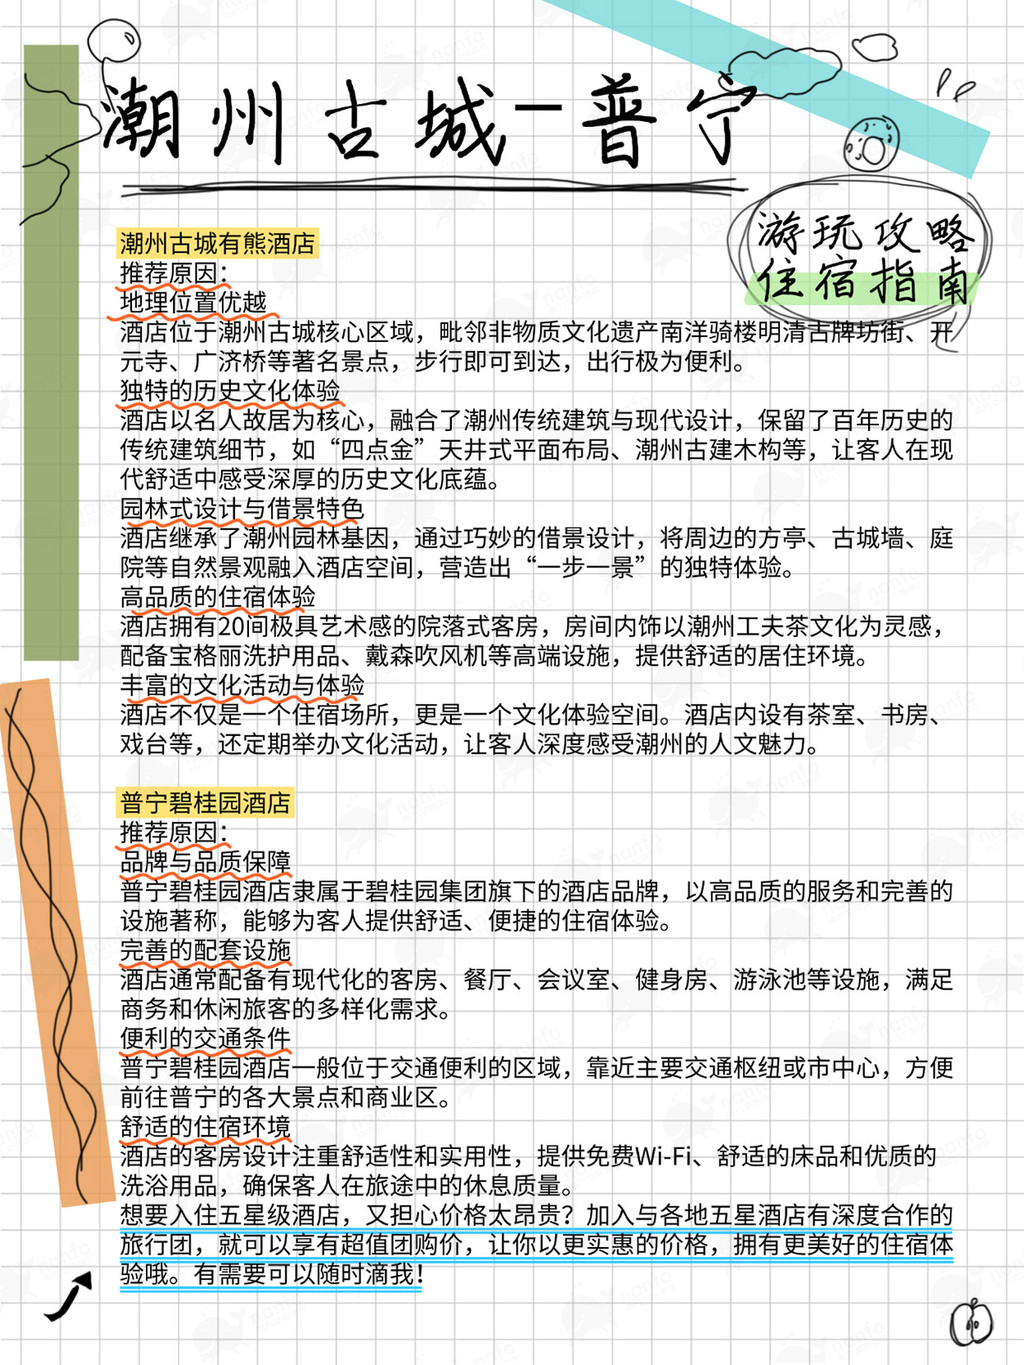 潮州古城-普宁
游玩攻略
住宿指南
潮州古城有熊酒店
推荐原因：
地理位置优越
酒店位于潮州古城核心区域，毗邻非物质文化遗产南洋骑楼明清古牌坊街、开
元寺、广济桥等著名景点，步行即可到达，出行极为便利。
独特的历史文化体验
酒店以名人故居为核心，融合了潮州传统建筑与现代设计，保留了百年历史的
传统建筑细节，如“四点金”天井式平面布局、潮州古建木构等，让客人在现
代舒适中感受深厚的历史文化底蕴。
园林式设计与借景特色
酒店继承了潮州园林基因，通过巧妙的借景设计，将周边的方亭、古城墙、庭
院等自然景观融入酒店空间，营造出“一步一景”的独特体验。
高品质的住宿体验
酒店拥有20间极具艺术感的院落式客房，房间内饰以潮州工夫茶文化为灵感，
配备宝格丽洗护用品、戴森吹风机等高端设施，提供舒适的居住环境。
丰富的文化活动与体验
酒店不仅是一个住宿场所，更是一个文化体验空间。酒店内设有茶室、书房、
戏台等，还定期举办文化活动，让客人深度感受潮州的人文魅力。
普宁碧桂园酒店
推荐原因：
品牌与品质保障
普宁碧桂园酒店隶属于碧桂园集团旗下的酒店品牌，以高品质的服务和完善的
设施著称，能够为客人提供舒适、便捷的住宿体验。
完善的配套设施
酒店通常配备有现代化的客房、餐厅、会议室、健身房、游泳池等设施，满足
商务和休闲旅客的多样化需求。
便利的交通条件
普宁碧桂园酒店一般位于交通便利的区域，靠近主要交通枢纽或市中心，方便
前往普宁的各大景点和商业区。
舒适的住宿环境
酒店的客房设计注重舒适性和实用性，提供免费Wi-Fi、舒适的床品和优质的
洗浴用品，确保客人在旅途中的休息质量。
想要入住五星级酒店，又担心价格太昂贵？加入与各地五星酒店有深度合作的
旅行团，就可以享有超值团购价，让你以更实惠的价格，拥有更美好的住宿体
验哦。有需要可以随时滴我！